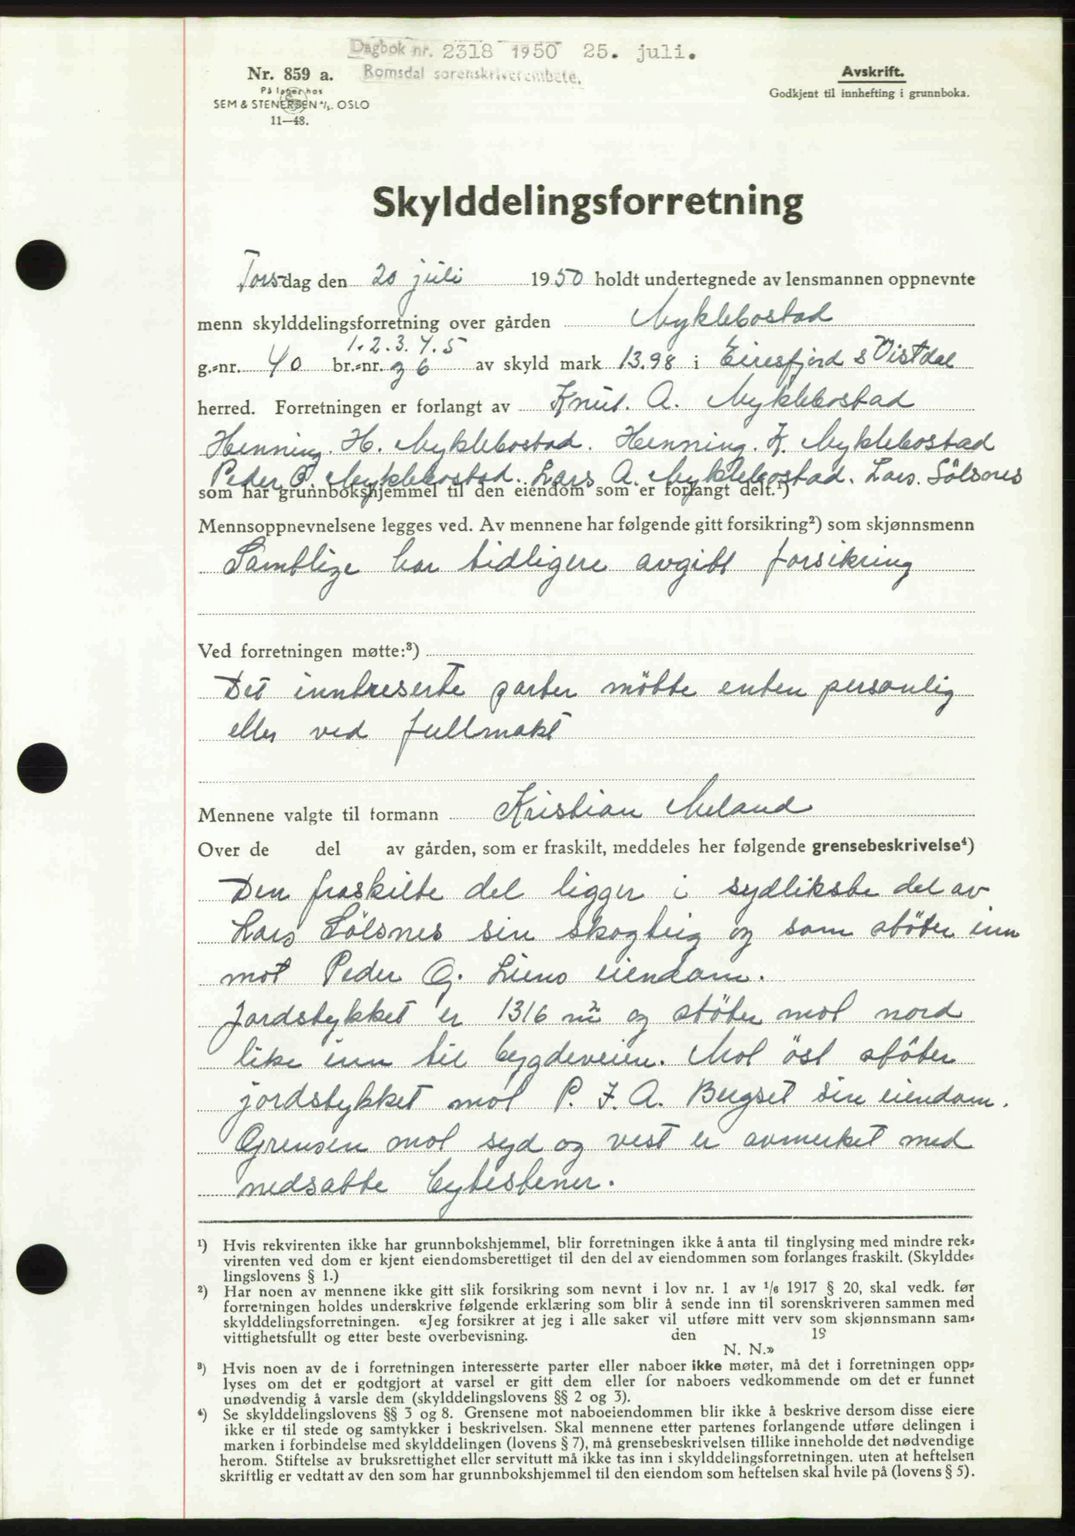 Dagbok nr. 2318 1950 25. juli.
Romsdal sorenskriverembete.
Nr. 859 a.
På lager hos
SEM & STENERSEN A/S. OSLO
11—48.
Avskrift.
Godkjent til innhefting i grunnboka.
Skylddelingsforretning
Torsdag den 20 juli 1950 holdt undertegnede av lensmannen oppnevnte
menn skylddelingsforretning over gården Myklebostad
1.2.3.4.5
g.-nr. 40 br.-nr. 36 av skyld mark 13.98 i Eiresfjord & Vistdal
herred. Forretningen er forlangt av Knut. A. Myklebostad
Henning. H. Myklebostad. Henning. K. Myklebostad
Peder O. Myklebostad. Lars A. Myklebostad. Lars. Sölsnes
som har grunnbokshjemmel til den eiendom som er forlangt delt.¹)
Mennsoppnevnelsene legges ved. Av mennene har følgende gitt forsikring²) som skjønnsmenn
Samtlige har tidligere avgitt forsikring
Ved forretningen møtte:³)
Det inntreserte parter mötte enten personlig
eller ved fullmakt
Mennene valgte til formann Kristian Meland
Over de del av gården, som er fraskilt, meddeles her følgende grensebeskrivelse⁴)
Den fraskilte del ligger i sydlikste del av
Lars Sölsnes sin skogteig og som stöter inn
mot Peder G. Liens eiendom.
Jordstykket er 1316 m² og stöter mot nord
like inn til bygdeveien. Mot öst stöter
jordstykket mot P. J. A. Bugset sin eiendom.
Grensen mot syd og vest er avmerket med
nedsatte bytestener.
¹) Hvis rekvirenten ikke har grunnbokshjemmel, blir forretningen ikke å anta til tinglysing med mindre rek-
virenten ved dom er kjent eiendomsberettiget til den del av eiendommen som forlanges fraskilt. (Skyldde-
lingslovens § 1.)
²) Har noen av mennene ikke gitt slik forsikring som nevnt i lov nr. 1 av 1/6 1917 § 20, skal vedk. før
forretningen holdes underskrive følgende erklæring som blir å sende inn til sorenskriveren sammen med
skylddelingsforretningen. «Jeg forsikrer at jeg i alle saker vil utføre mitt verv som skjønnsmann sam-
vittighetsfullt og etter beste overbevisning. den 19
N. N.»
³) Hvis noen av de i forretningen interesserte parter eller naboer ikke møter, må det i forretningen opp-
lyses om det er godtgjort at varsel er gitt dem eller for naboers vedkommende om det er funnet
unødvendig å varsle dem (skylddelingslovens §§ 2 og 3).
⁴) Se skylddelingslovens §§ 3 og 8. Grensene mot naboeiendommen blir ikke å beskrive dersom disse eiere
ikke er til stede og samtykker i beskrivelsen. Skal mennene etter partenes forlangende utføre delingen i
marken i forbindelse med skylddelingen (lovens § 7), må grensebeskrivelsen tillike inneholde det nødvendige
herom. Stiftelse av bruksrettighet eller servitutt må ikke tas inn i skylddelingsforretningen. uten at heftelsen
skriftlig er vedtatt av den som har grunnbokshjemmel til den eiendom som heftelsen skal hvile på (lovens § 5).